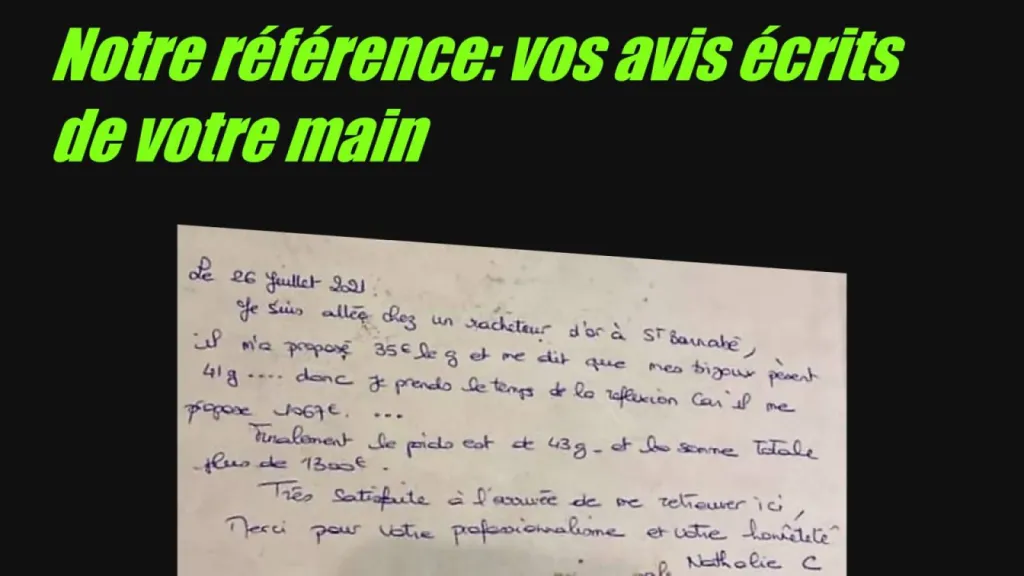 Notre référence: vos avis écrits
de votre main
Le 26 Juillet 2021.
Je suis allée chez un racheteur d'or à St Barnabé,
il m'a proposé 35€ le g et me dit que mes bijoux pèsent
41g .... donc je prends le temps de la réflexion car il me
propose 1067€. ...
Finalement le poids est de 43g - et la somme totale
plus de 1300€.
Très satisfaite à l'arrivée de me retrouver ici,
Merci pour votre professionnalisme et votre honnêteté
Nathalie C